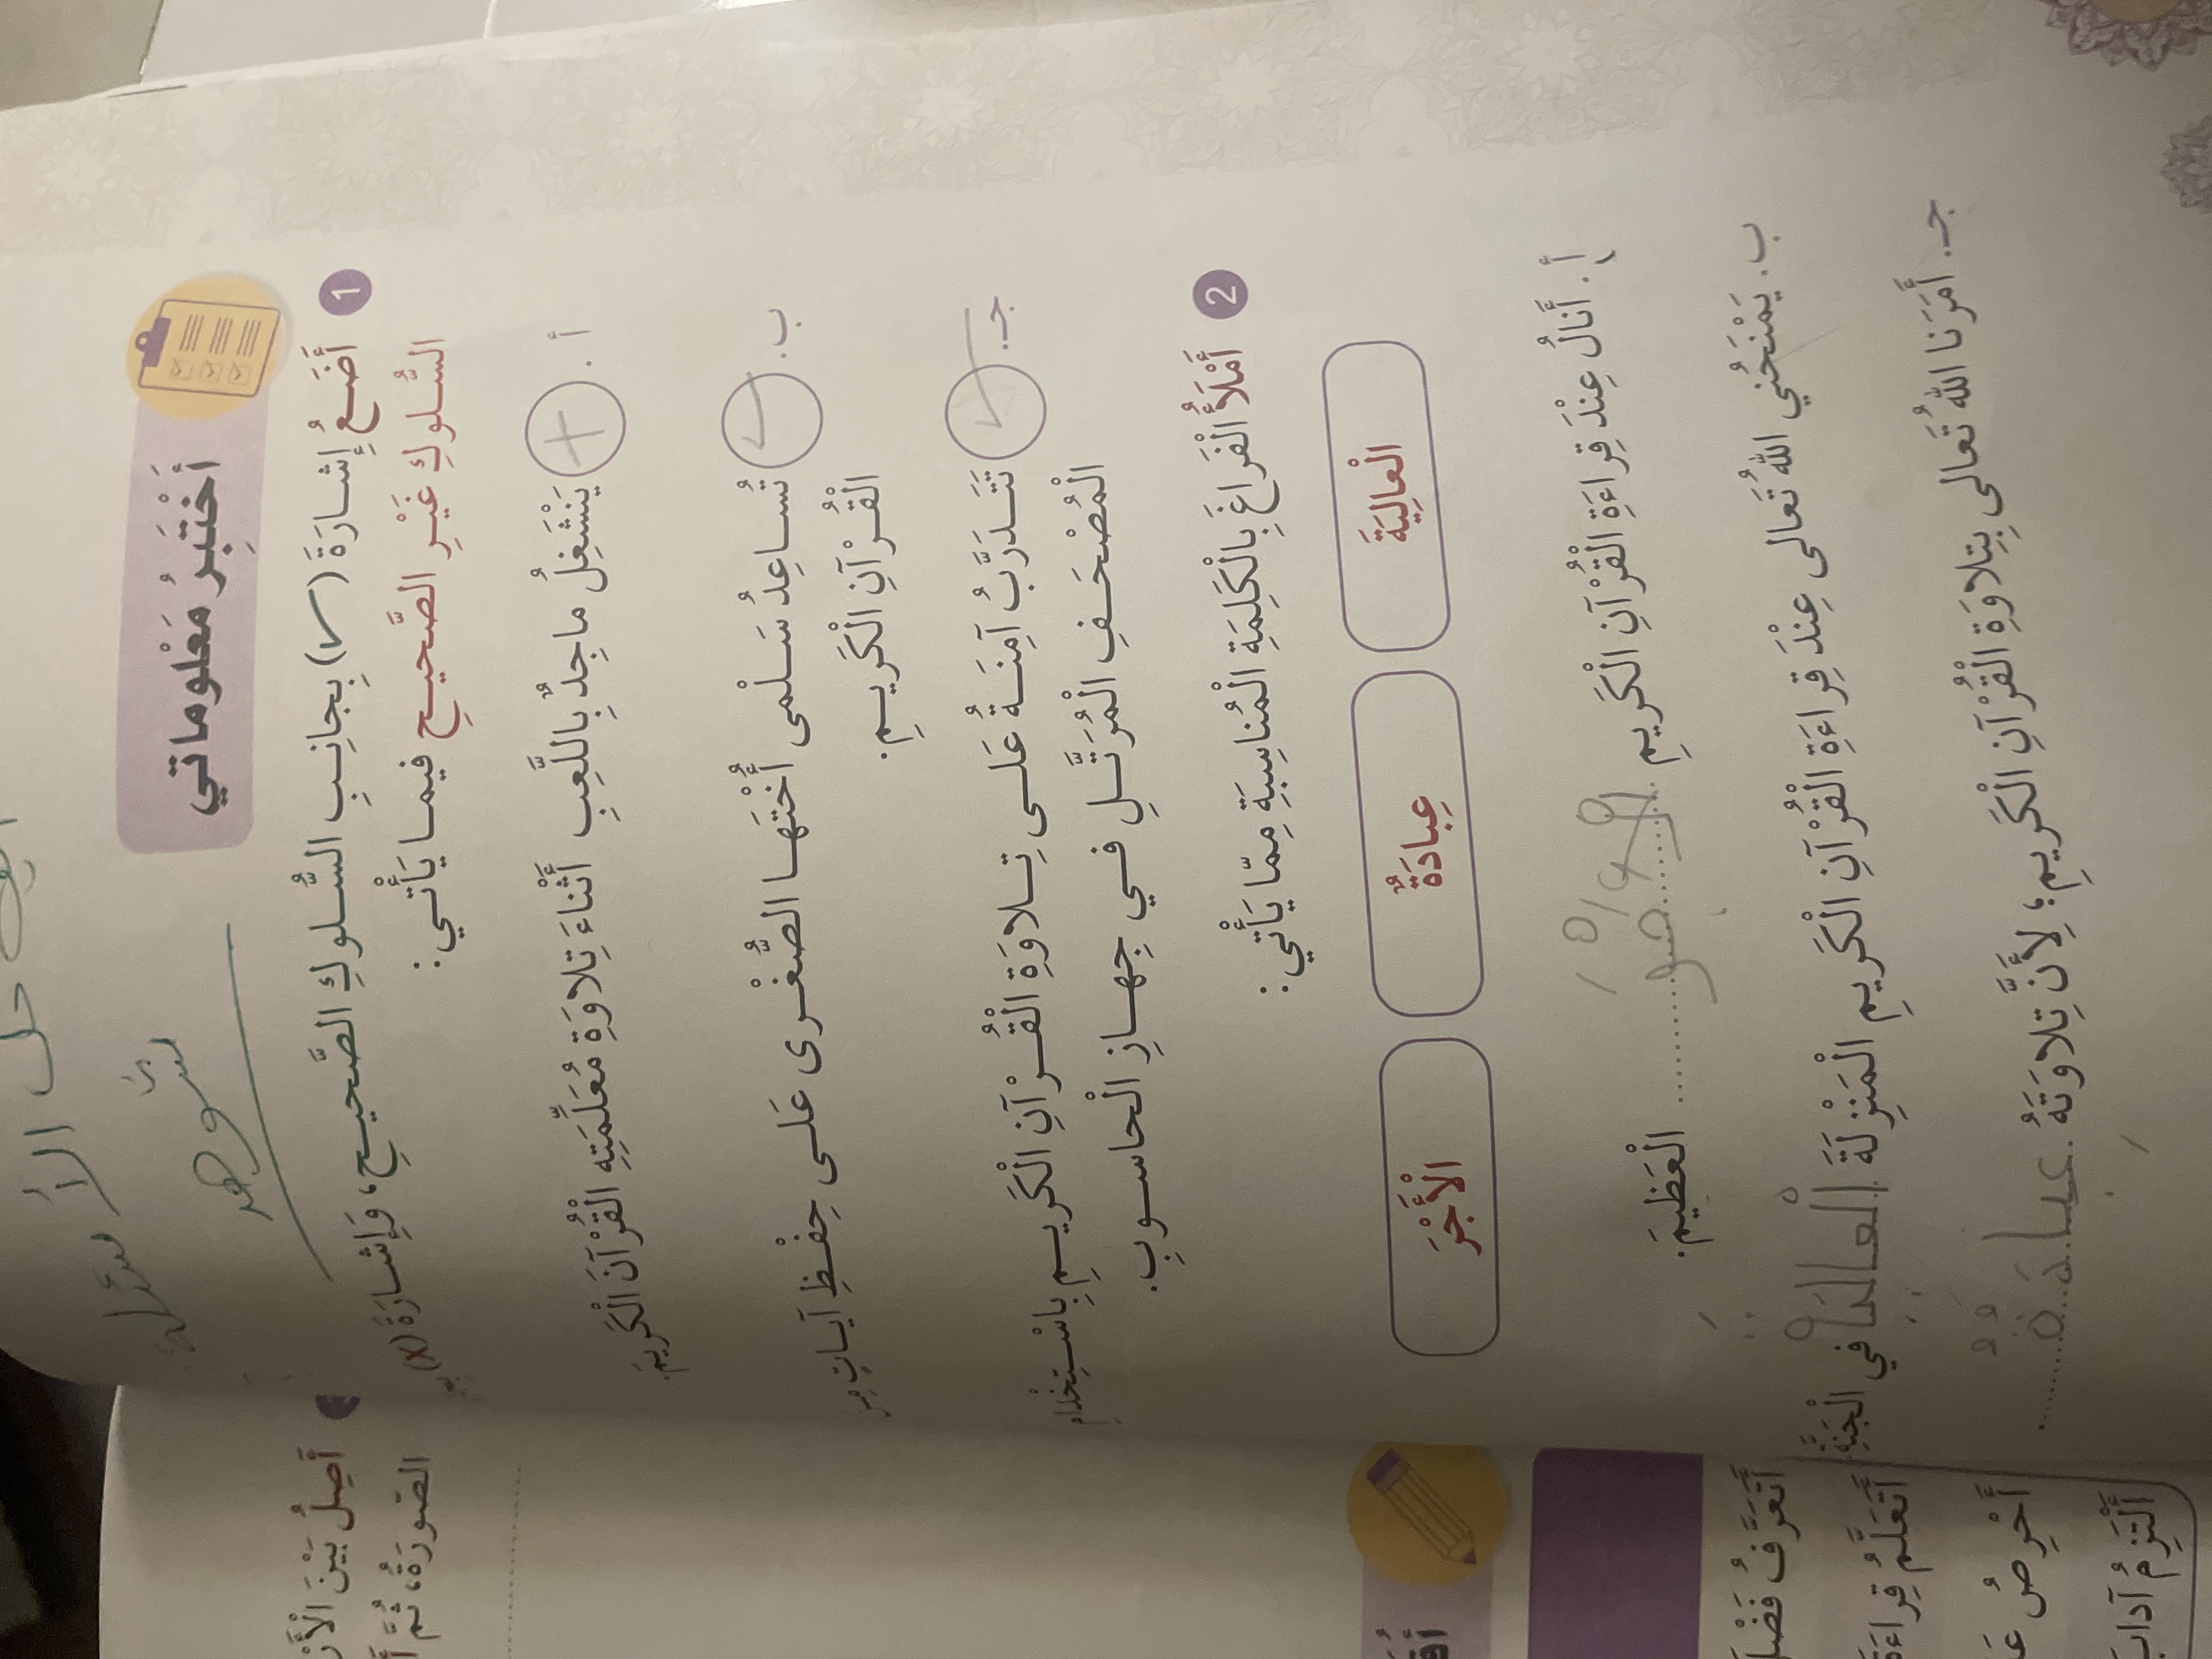 حل الأسئلة
شوهد
أَخْتَبِرُ مَعْلوماتي
1 أَضَعُ إِشارَةَ (✓) بِجانِبِ السُّلوكِ الصَّحيحِ، وَإِشارَةَ (X)
السُّلوكِ غَيْرِ الصَّحيحِ فيما يَأْتي:
أ . يَنْشَغِلُ ماجِدٌ بِاللَّعِبِ أَثْناءَ تِلاوَةِ مُعَلِّمَتِهِ الْقُرْآنَ الْكَريمَ.
ب. ✓ تُساعِدُ سَلْمى أُخْتَها الصُّغْرى عَلى حِفْظِ آياتٍ مِنَ
الْقُرْآنِ الْكَريمِ.
جـ. ✓ تَتَدَرَّبُ آمِنَةُ عَلى تِلاوَةِ الْقُرْآنِ الْكَريمِ بِاسْتِخْدامِ
الْمُصْحَفِ الْمُرَتَّلِ في جِهازِ الْحاسوبِ.
2 أَمْلَأُ الْفَراغَ بِالْكَلِمَةِ الْمُناسِبَةِ مِمّا يَأْتي:
الْعالِيَةَ عِبادَةٌ الْأَجْرَ
أ . أَنالُ عِنْدَ قِراءَةِ الْقُرْآنِ الْكَريمِ ........ الْعَظيمَ.
ب. يَمْنَحُني اللهُ تَعالى عِنْدَ قِراءَةِ الْقُرْآنِ الْكَريمِ الْمَنْزِلَةَ الْعالِيَةَ في الْجَنَّةِ.
جـ. أَمَرَنا اللهُ تَعالى بِتِلاوَةِ الْقُرْآنِ الْكَريمِ؛ لِأَنَّ تِلاوَتَهُ عبادَةٌ
أَصِلُ بَيْنَ
الصّورَةُ، ثُمَّ
أَتَعَرَّفُ فَضْلَ
أَتَعَلَّمُ قِراءَةَ
أَحْرِصُ
أَلْتَزِمُ آدابَ